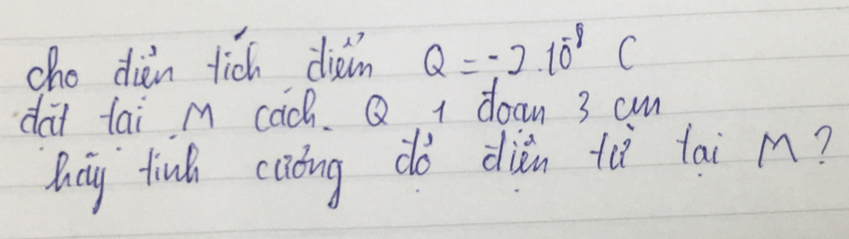 cho điện tích điểm Q = -2.10⁻⁸ C
đặt tại M cách Q 1 đoạn 3 cm
hãy tính cường độ điện từ tại M?